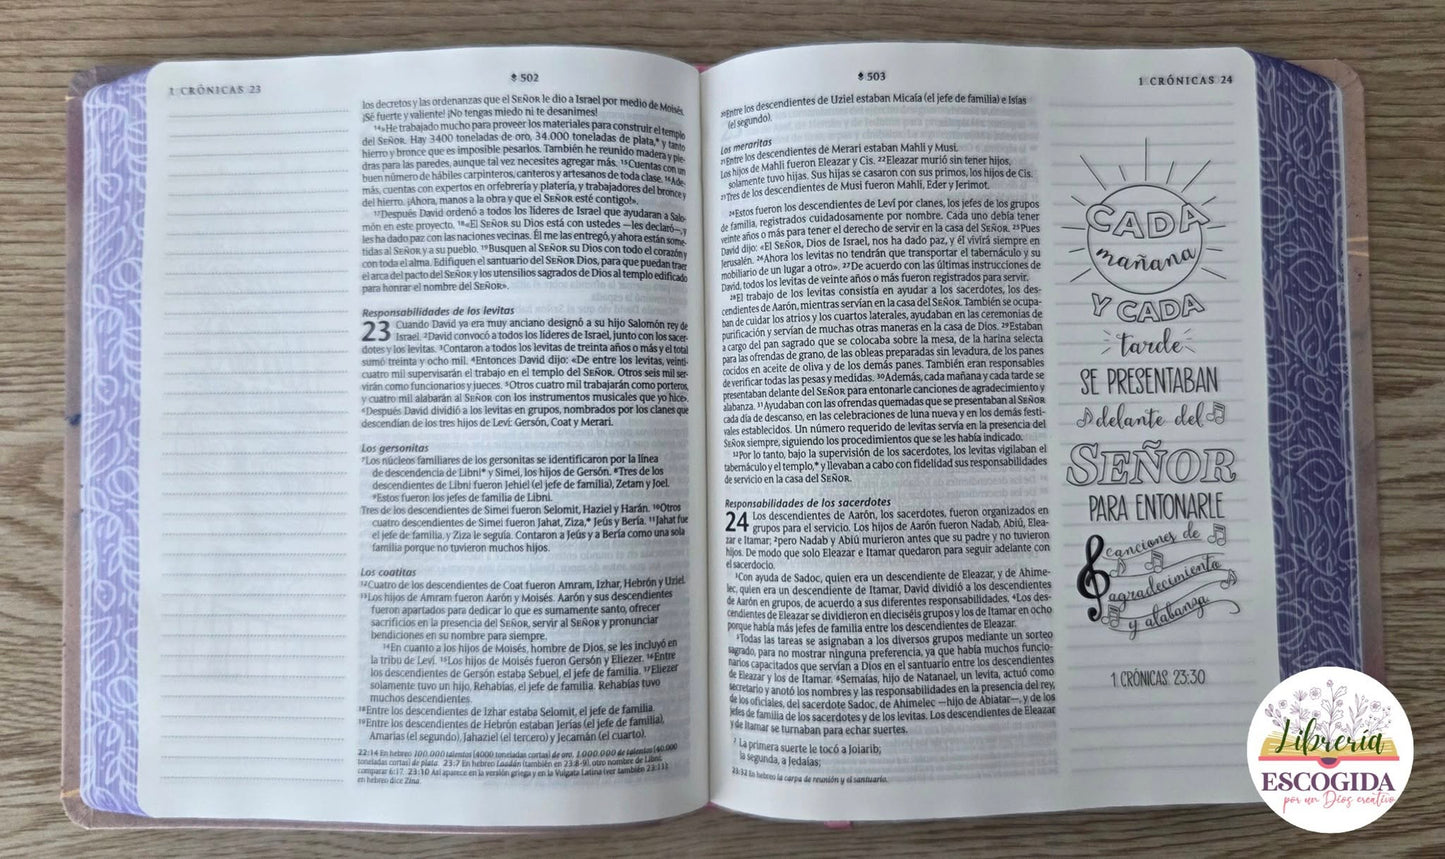 1 CRÓNICAS 23
502
los decretos y las ordenanzas que el SEÑOR le dio a Israel por medio de Moisés.
¡Sé fuerte y valiente! ¡No tengas miedo ni te desanimes!
14»He trabajado mucho para proveer los materiales para construir el templo
del SEÑOR. Hay 3400 toneladas de oro, 34.000 toneladas de plata,* y tanto
hierro y bronce que es imposible pesarlos. También he reunido madera y pie-
dras para las paredes, aunque tal vez necesites agregar más. 15Cuentas con un
buen número de hábiles carpinteros, canteros y artesanos de toda clase. 16Ade-
más, cuentas con expertos en orfebrería y platería, y trabajadores del bronce y
del hierro. ¡Ahora, manos a la obra y que el SEÑOR esté contigo!».
17Después David ordenó a todos los líderes de Israel que ayudaran a Salo-
món en este proyecto. 18«El SEÑOR su Dios está con ustedes —les declaró—, y
les ha dado paz con las naciones vecinas. Él me las entregó, y ahora están some-
tidas al SEÑOR y a su pueblo. 19Busquen al SEÑOR su Dios con todo el corazón y
con toda el alma. Edifiquen el santuario del SEÑOR Dios, para que puedan traer
el arca del pacto del SEÑOR y los utensilios sagrados de Dios al templo edificado
para honrar el nombre del SEÑOR».
Responsabilidades de los levitas
23 Cuando David ya era muy anciano designó a su hijo Salomón rey de
Israel. 2David convocó a todos los líderes de Israel, junto con los sacer-
dotes y los levitas. 3Contaron a todos los levitas de treinta años o más y el total
sumó treinta y ocho mil. 4Entonces David dijo: «De entre los levitas, veinti-
cuatro mil supervisarán el trabajo en el templo del SEÑOR. Otros seis mil ser-
virán como funcionarios y jueces. 5Otros cuatro mil trabajarán como porteros,
y cuatro mil alabarán al SEÑOR con los instrumentos musicales que yo hice».
6Después David dividió a los levitas en grupos, nombrados por los clanes que
descendían de los tres hijos de Leví: Gersón, Coat y Merari.
Los gersonitas
7Los núcleos familiares de los gersonitas se identificaron por la línea
de descendencia de Libni* y Simei, los hijos de Gersón. 8Tres de los
descendientes de Libni fueron Jehiel (el jefe de familia), Zetam y Joel.
9Estos fueron los jefes de familia de Libni.
Tres de los descendientes de Simei fueron Selomit, Haziel y Harán. 10Otros
cuatro descendientes de Simei fueron Jahat, Ziza,* Jeús y Bería. 11Jahat fue
el jefe de familia, y Ziza le seguía. Contaron a Jeús y a Bería como una sola
familia porque no tuvieron muchos hijos.
Los coatitas
12Cuatro de los descendientes de Coat fueron Amram, Izhar, Hebrón y Uziel.
13Los hijos de Amram fueron Aarón y Moisés. Aarón y sus descendientes
fueron apartados para dedicar lo que es sumamente santo, ofrecer
sacrificios en la presencia del SEÑOR, servir al SEÑOR y pronunciar
bendiciones en su nombre para siempre.
14En cuanto a los hijos de Moisés, hombre de Dios, se les incluyó en
la tribu de Leví. 15Los hijos de Moisés fueron Gersón y Eliezer. 16Entre
los descendientes de Gersón estaba Sebuel, el jefe de familia. 17Eliezer
solamente tuvo un hijo, Rehabías, el jefe de familia. Rehabías tuvo
muchos descendientes.
18Entre los descendientes de Izhar estaba Selomit, el jefe de familia.
19Entre los descendientes de Hebrón estaban Jerías (el jefe de familia),
Amarías (el segundo), Jahaziel (el tercero) y Jecamán (el cuarto).
22:14 En hebreo 100.000 talentos [4000 toneladas cortas] de oro, 1.000.000 de talentos [40.000
toneladas cortas] de plata. 23:7 En hebreo Laadán (también en 23:8-9), otro nombre de Libni;
comparar 6:17. 23:10 Así aparece en la versión griega y en la Vulgata Latina (ver también 23:11);
en hebreo dice Zina.
503
1 CRÓNICAS 24
20Entre los descendientes de Uziel estaban Micaía (el jefe de familia) e Isías
(el segundo).
Los meraritas
21Entre los descendientes de Merari estaban Mahli y Musi.
Los hijos de Mahli fueron Eleazar y Cis. 22Eleazar murió sin tener hijos,
solamente tuvo hijas. Sus hijas se casaron con sus primos, los hijos de Cis.
23Tres de los descendientes de Musi fueron Mahli, Eder y Jerimot.
24Estos fueron los descendientes de Leví por clanes, los jefes de los grupos
de familia, registrados cuidadosamente por nombre. Cada uno debía tener
veinte años o más para tener el derecho de servir en la casa del SEÑOR. 25Pues
David dijo: «El SEÑOR, Dios de Israel, nos ha dado paz, y él vivirá siempre en
Jerusalén. 26Ahora los levitas no tendrán que transportar el tabernáculo y su
mobiliario de un lugar a otro». 27De acuerdo con las últimas instrucciones de
David, todos los levitas de veinte años o más fueron registrados para servir.
28El trabajo de los levitas consistía en ayudar a los sacerdotes, los des-
cendientes de Aarón, mientras servían en la casa del SEÑOR. También se ocupa-
ban de cuidar los atrios y los cuartos laterales, ayudaban en las ceremonias de
purificación y servían de muchas otras maneras en la casa de Dios. 29Estaban
a cargo del pan sagrado que se colocaba sobre la mesa, de la harina selecta
para las ofrendas de grano, de las obleas preparadas sin levadura, de los panes
cocidos en aceite de oliva y de los demás panes. También eran responsables
de verificar todas las pesas y medidas. 30Además, cada mañana y cada tarde se
presentaban delante del SEÑOR para entonarle canciones de agradecimiento y
alabanza. 31Ayudaban con las ofrendas quemadas que se presentaban al SEÑOR
cada día de descanso, en las celebraciones de luna nueva y en los demás festi-
vales establecidos. Un número requerido de levitas servía en la presencia del
SEÑOR siempre, siguiendo los procedimientos que se les había indicado.
32Por lo tanto, bajo la supervisión de los sacerdotes, los levitas vigilaban el
tabernáculo y el templo,* y llevaban a cabo con fidelidad sus responsabilidades
de servicio en la casa del SEÑOR.
Responsabilidades de los sacerdotes
24 Los descendientes de Aarón, los sacerdotes, fueron organizados en
grupos para el servicio. Los hijos de Aarón fueron Nadab, Abiú, Elea-
zar e Itamar; 2pero Nadab y Abiú murieron antes que su padre y no tuvieron
hijos. De modo que solo Eleazar e Itamar quedaron para seguir adelante con
el sacerdocio.
3Con ayuda de Sadoc, quien era un descendiente de Eleazar, y de Ahime-
lec, quien era un descendiente de Itamar, David dividió a los descendientes
de Aarón en grupos, de acuerdo a sus diferentes responsabilidades. 4Los des-
cendientes de Eleazar se dividieron en dieciséis grupos y los de Itamar en ocho
porque había más jefes de familia entre los descendientes de Eleazar.
5Todas las tareas se asignaban a los diversos grupos mediante un sorteo
sagrado, para no mostrar ninguna preferencia, ya que había muchos funcio-
narios capacitados que servían a Dios en el santuario entre los descendientes
de Eleazar y los de Itamar. 6Semaías, hijo de Natanael, un levita, actuó como
secretario y anotó los nombres y las responsabilidades en la presencia del rey,
de los oficiales, del sacerdote Sadoc, de Ahimelec —hijo de Abiatar—, y de los
jefes de familia de los sacerdotes y de los levitas. Los descendientes de Eleazar
y de Itamar se turnaban para echar suertes.
7 La primera suerte le tocó a Joiarib;
la segunda, a Jedaías;
23:32 En hebreo la carpa de reunión y el santuario.
CADA
mañana
Y CADA
tarde
SE PRESENTABAN
delante del
SEÑOR
PARA ENTONARLE
canciones de
agradecimiento
y alabanza.
1 CRÓNICAS 23:30
Librería
ESCOGIDA
por un Dios creativo